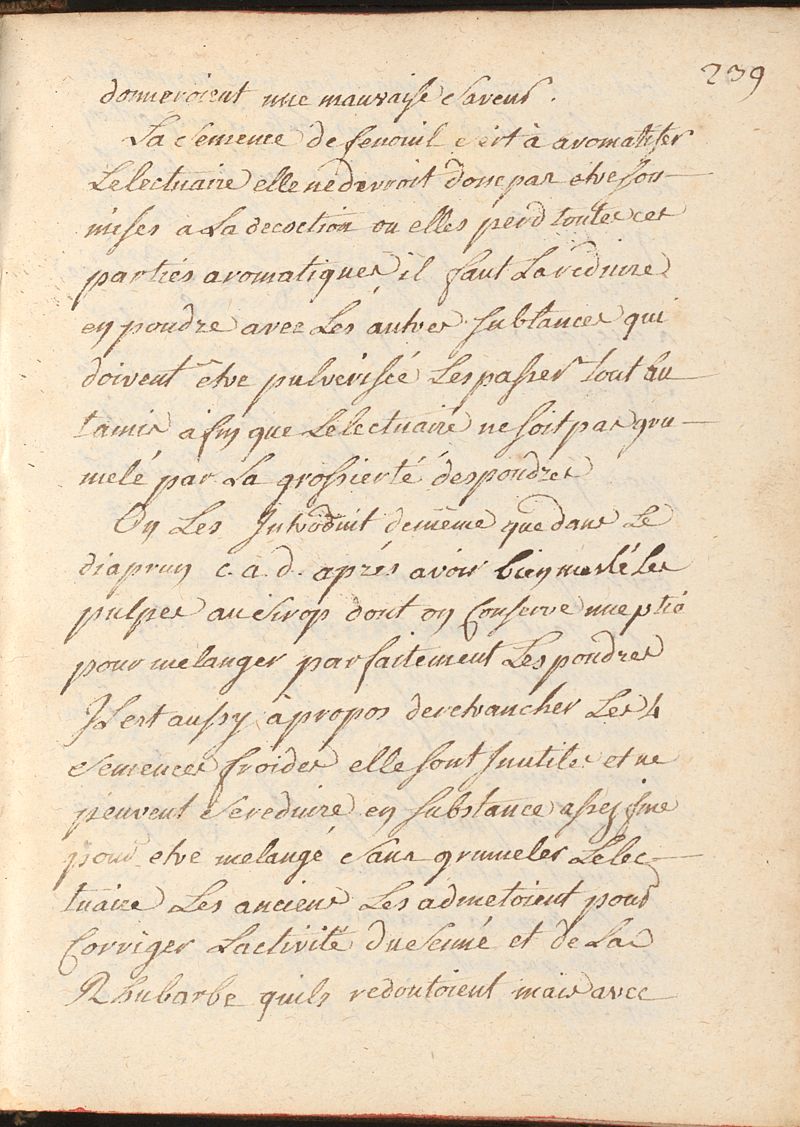 239
donneroient une mauvaise saveur.
La semence de fenouil sert à aromatiser
Lelectuaire elle nedevroit donc pas etre sou-
mises a La decoction ou elles perd toutes ces
parties aromatiques il faut La reduire
en poudre avec Les autres substances qui
doivent etre pulverisée Les passer tout au
tamis afin que Lelectuaire ne soit pas gru-
melé par La grossierté des poudres
On Les Introduit demême que dans Le
diaprun c. a. d. aprés avoir bien meslé les
pulpes au sirop dont on Conserve une ptie
pour melanger parfaitement Les poudres
Il est aussy à propos deretrancher Les 4
semences froides elle sont Inutiles et ne
peuvent se reduire en substance assez fine
pour etre melangé sans grumeler Lelec-
tuaire Les anciens Les admetoient pour
Corriger Lactivité du sené et de La
Rhubarbe quils redoutoient mais avec